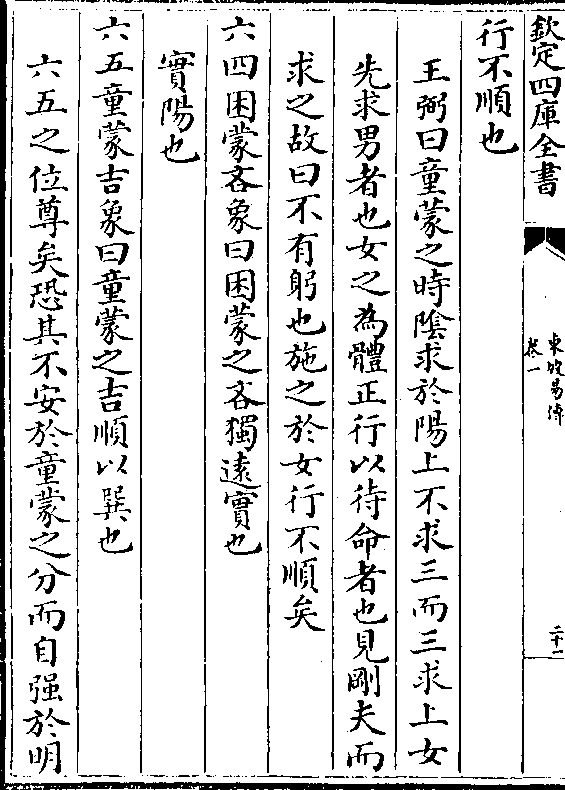 欽定四庫全書
東坡易傳
卷一
二十一
行不順也
王弼曰童蒙之時陰求於陽上不求三而三求上女
先求男者也女之為體正行以待命者也見剛夫而
求之故曰不有躬也施之於女行不順矣
六四困蒙吝象曰困蒙之吝獨逺實也
實陽也
六五童蒙吉象曰童蒙之吉順以巽也
六五之位尊矣恐其不安於童蒙之分而自强於明